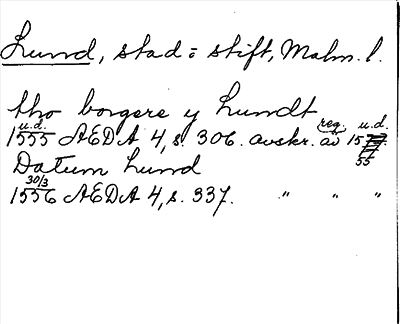 Lund, stad o stift, Malm. l.
tho borgere y Lundt
u.d. reg. u.d.
1555 AEDA 4, s. 306. avskr. av 15
55
Datum Lund
30/3
1556 AEDA 4, s. 337. " " "